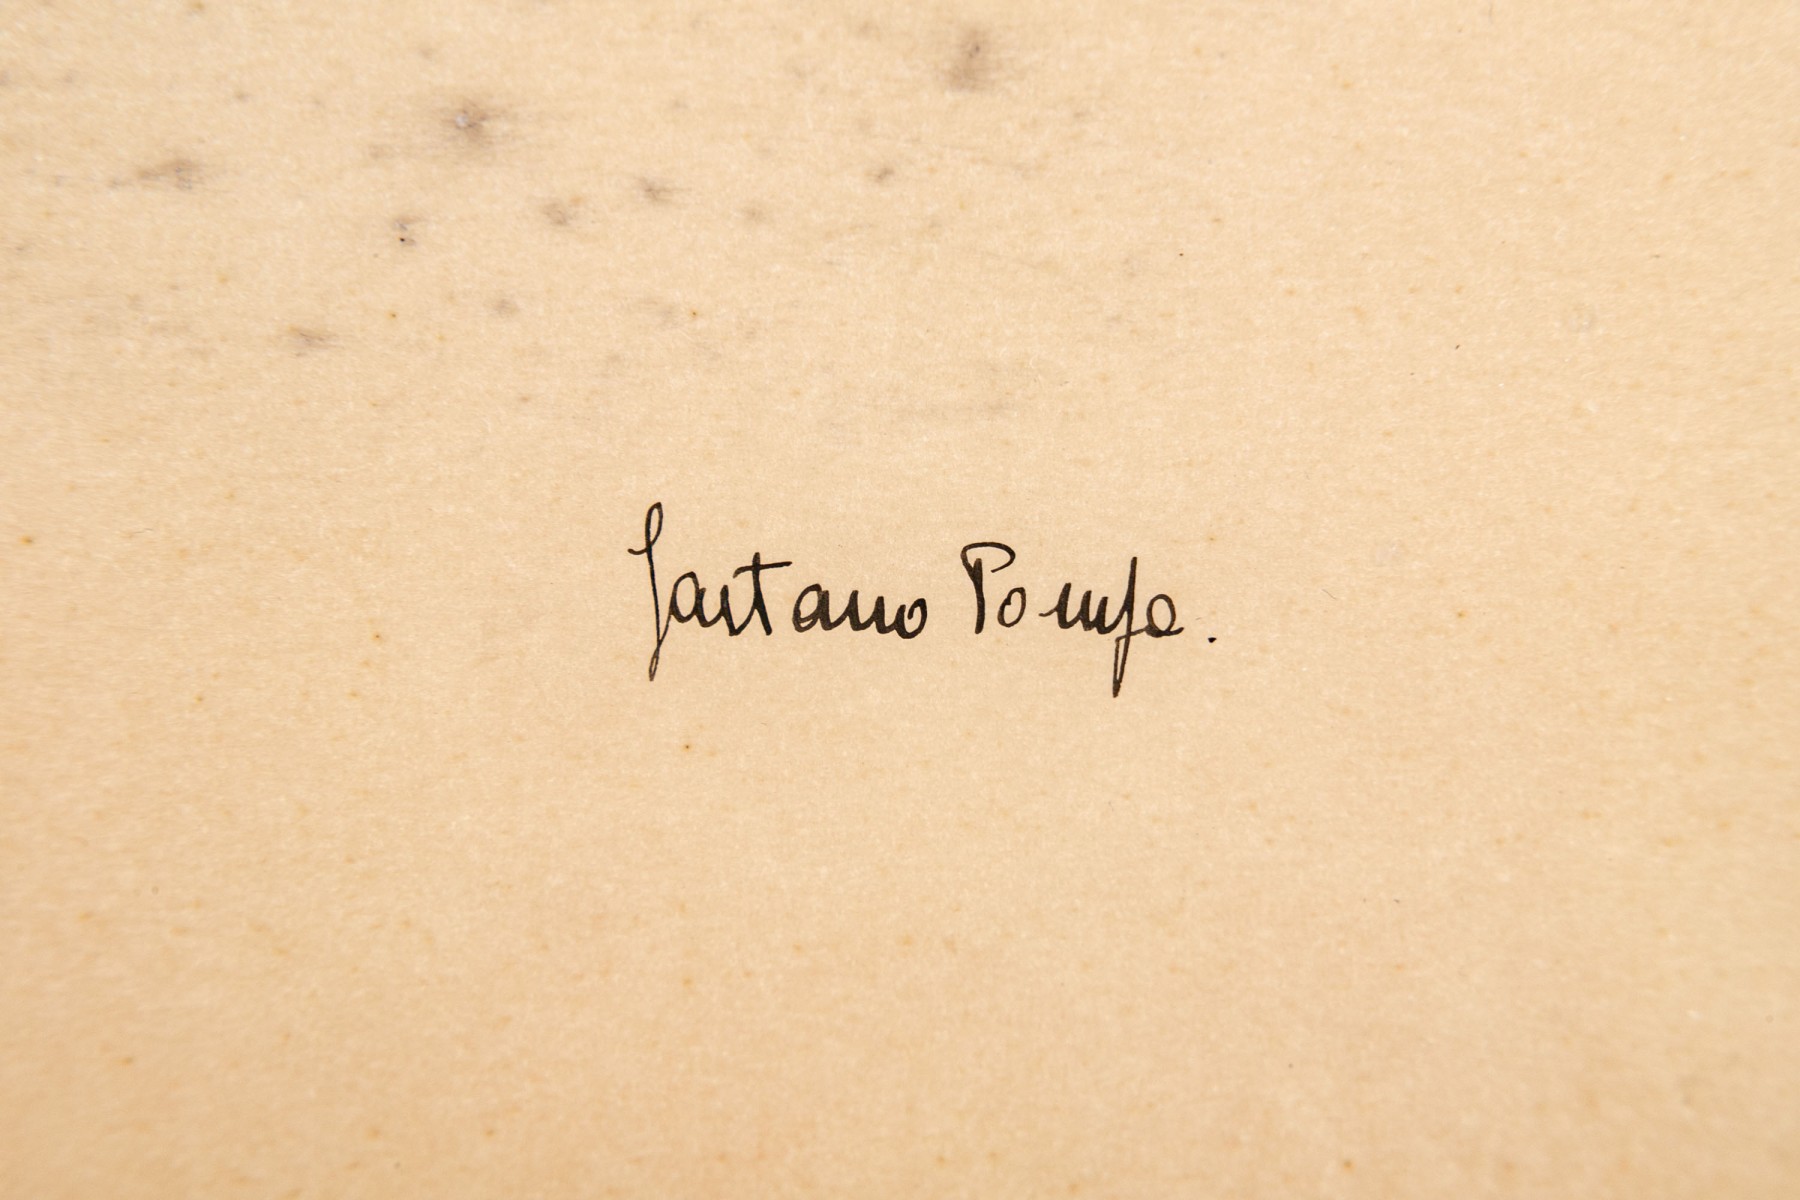 Gaetano Pompa.